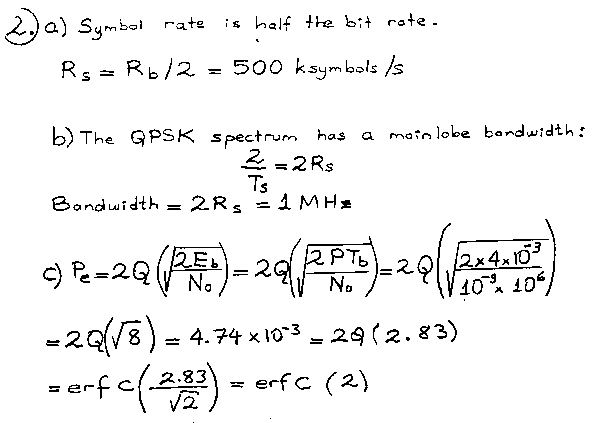 2. a) Symbol rate is half the bit rate.
Rs = Rb/2 = 500 ksymbols/s
b) The QPSK spectrum has a mainlobe bandwidth:
2/Ts = 2Rs
Bandwidth = 2Rs = 1 MHz
c) Pe = 2Q(√(2Eb/No)) = 2Q(√(2PTb/No)) = 2Q(√(2×4×10⁻³/10⁻⁹×10⁶))
= 2Q(√8) = 4.74 × 10⁻³ = 2Q(2.83)
= erfc(2.83/√2) = erfc (2)